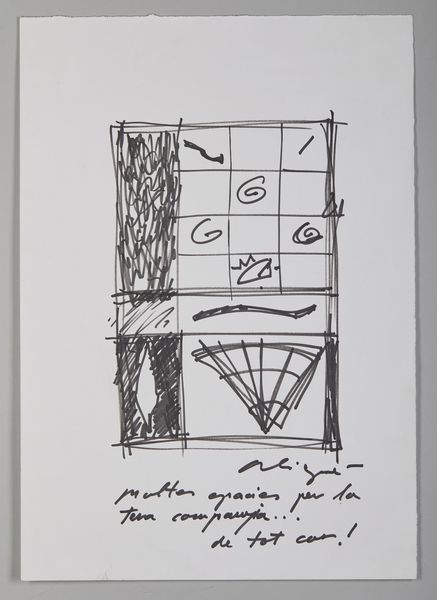 moltes gracies per la
teva companyia...
de tot cor!